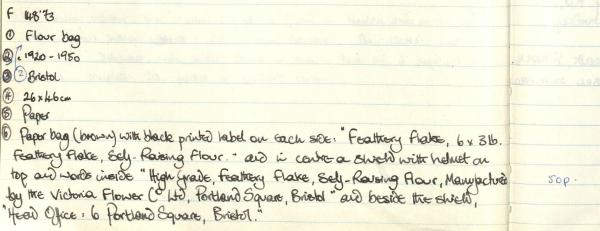 F 148'73
① Flour bag
② c 1920 - 1950
③ ② Bristol
④ 26 x 46 cm
⑤ Paper
⑥ Paper bag (brown) with black printed label on each side: "Feathery Flake, 6 x 3 lb.
Feathery Flake, Self-Raising Flour." and in centre a shield with helmet on
top and words inside "High Grade, Feathery Flake, Self-Raising Flour, Manufactured
by the Victoria Flower Co Ltd, Portland Square, Bristol" and beside the shield,
"Head Office: 6 Portland Square, Bristol."
50p.